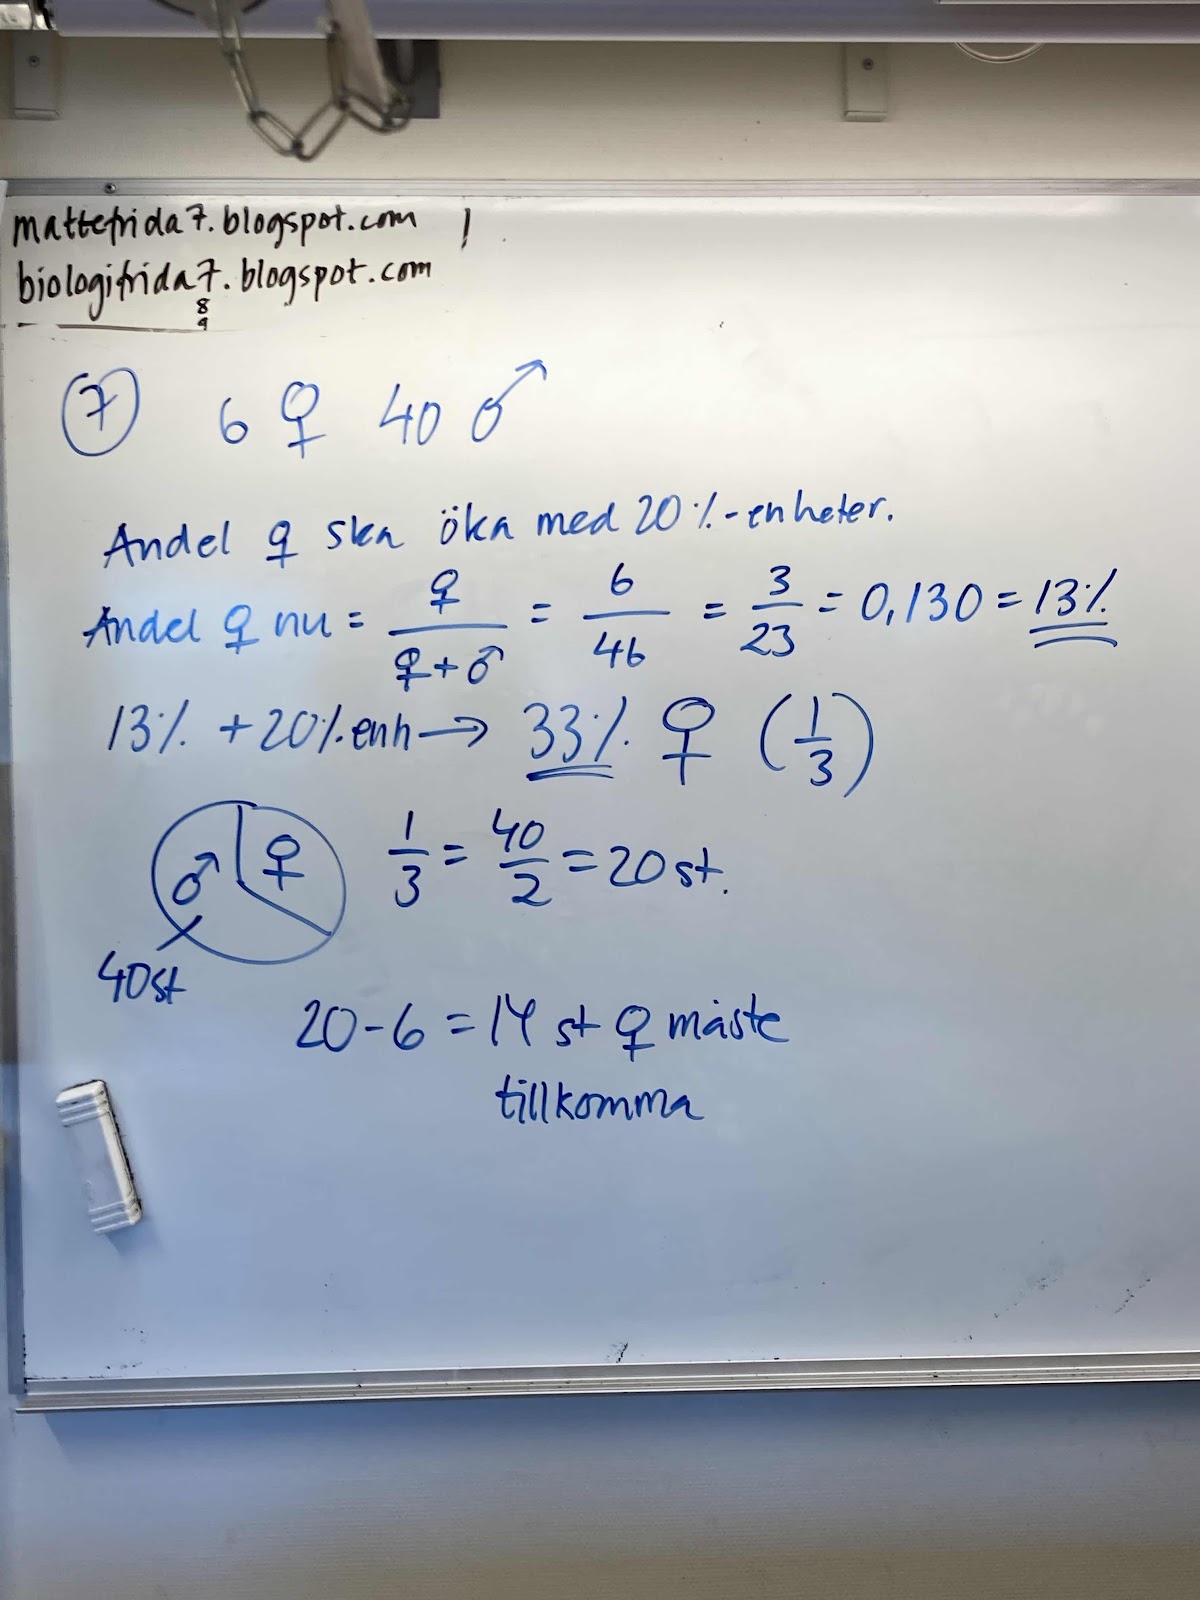 mattefrida7.blogspot.com !
biologifrida7.blogspot.com
8
9
7 6 ♀ 40 ♂
Andel ♀ ska öka med 20%-enheter.
Andel ♀ nu = ♀/(♀+♂) = 6/46 = 3/23 = 0,130 = 13%
13% + 20%enh → 33% ♀ (1/3)
♂ ♀ 1/3 = 40/2 = 20 st.
40st
20-6 = 14 st ♀ måste
tillkomma